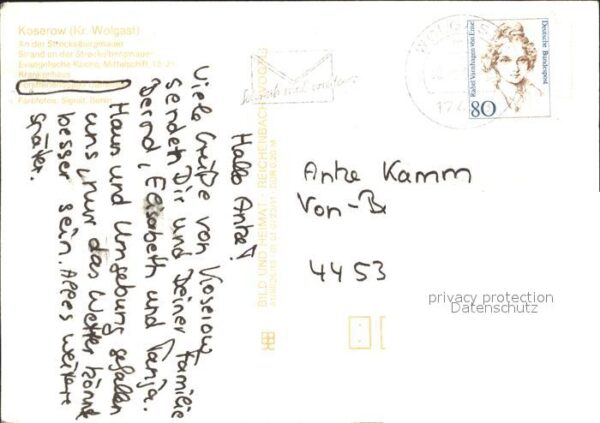 Koserow (Kr. Wolgast)
An der Streckelsbergmauer
Strand an der Streckelsbergmauer
Evangelische Kirche, Mittelschiff
Krankenhaus
Farbfotos: Signal, Berlin
Hallo Antje!
Viele Grüße von Koserow
senden Dir und Deiner Familie
Bernd, Elisabeth und Tanja.
Haus und Umgebung gefallen
uns, nur das Wetter könnte
besser sein. Alles weitere
später.
BILD UND HEIMAT · REICHENBACH (VOGTL)
WOLGAST
Deutsche Bundespost
Rahel Varnhagen von Ense
80
Antje Kamm
Von-B
4453
privacy protection
Datenschutz